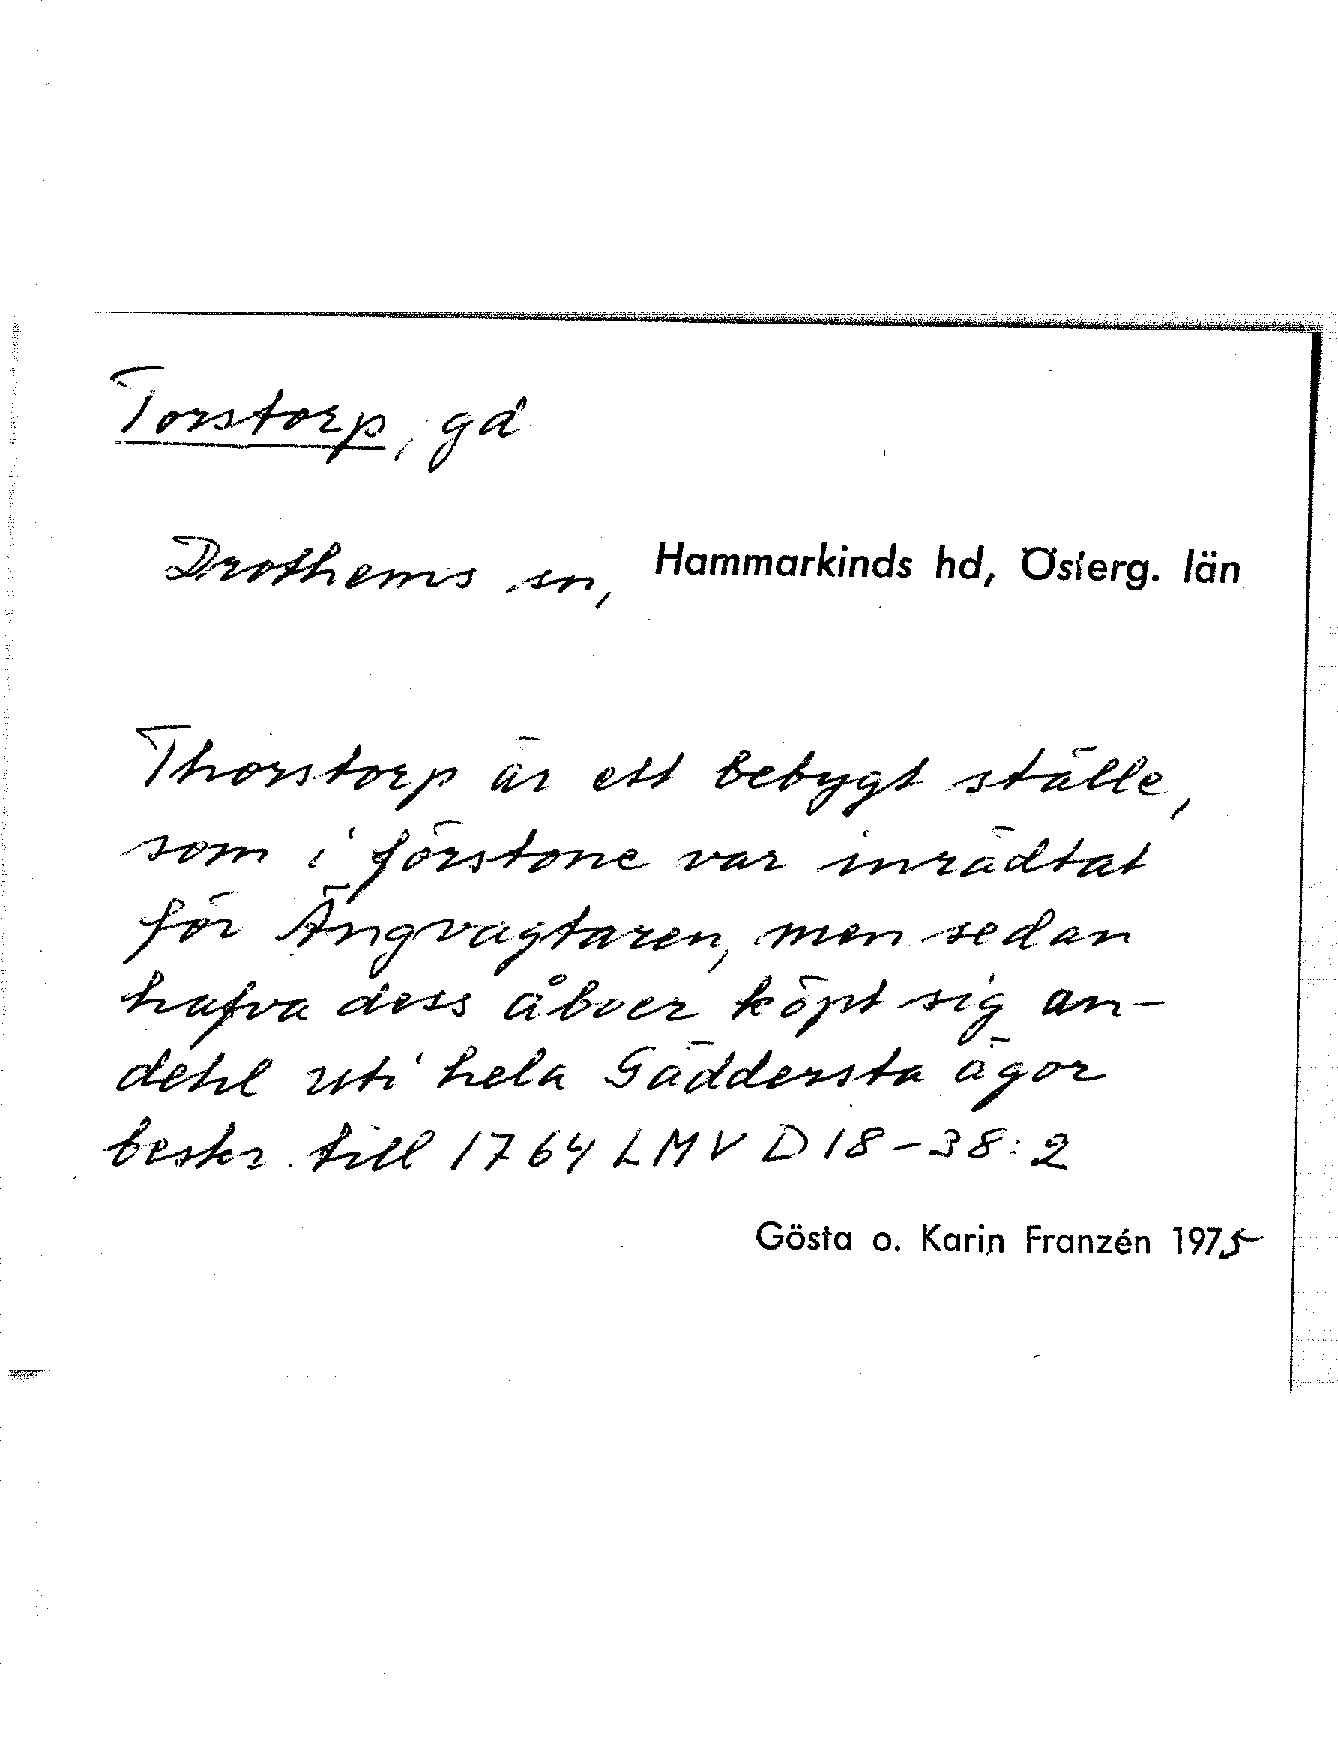 Torstorp, gd
Drothems sn, Hammarkinds hd, Österg. län
Thorstorp är ett bebygt ställe,
som i förstone var inrädtat
för Ängvagtaren, men sedan
hafva dess åboer köpt sig an-
dehl uti hela Gäddersta ägor
beskr. till 1764 LMV D 18-38:2
Gösta o. Karin Franzén 1975